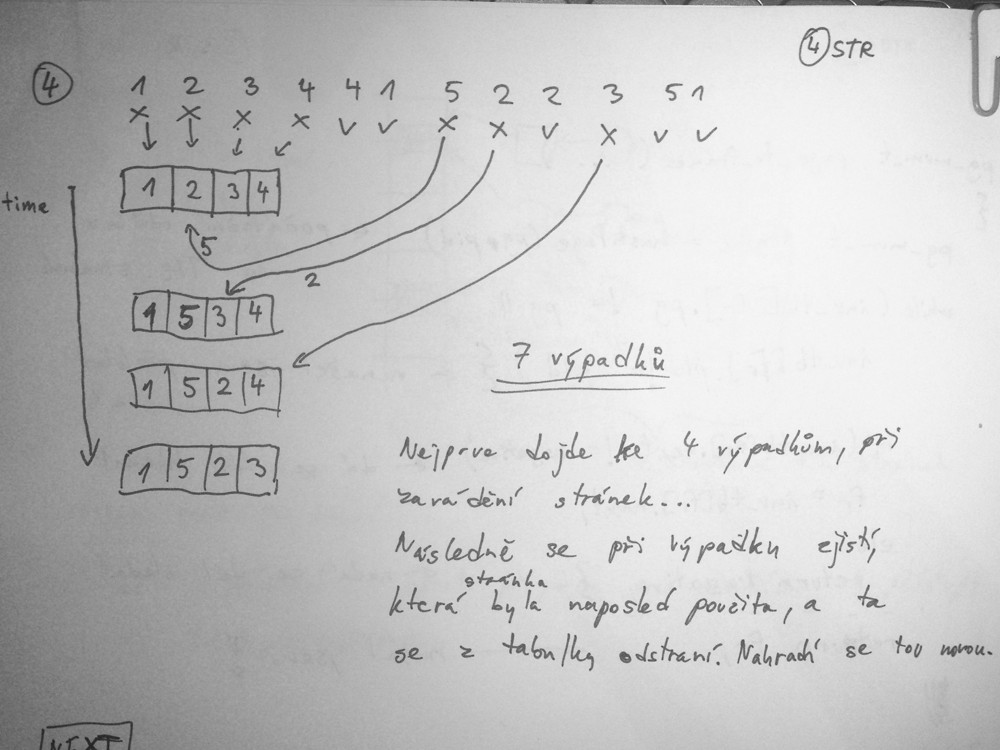 ④ STR
④ 1 2 3 4 4 1 5 2 2 3 5 1
x x x x v v x x v x v v
1 2 3 4
time
5
2
1 5 3 4
7 výpadků
1 5 2 4
Nejprve dojde ke 4 výpadkům, při
1 5 2 3
zavádění stránek...
Následně se při výpadku zjistí,
stránka
která byla naposled použita, a ta
se z tabulky odstraní. Nahradí se tou novou.
NEXT